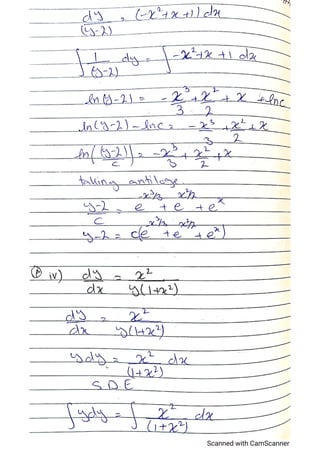 dy/(y-2) = (-x²+x+1) dx
∫ 1/(y-2) dy = ∫ -x²+x+1 dx
ln(y-2) = -x³/3 + x²/2 + x + lnc
ln(y-2) - lnc = -x³/3 + x²/2 + x
ln((y-2)/c) = -x³/3 + x²/2 + x
taking antiloge.
y-2/c = e^(-x³/3) + e^(x²/2) + e^x
y-2 = c(e^(-x³/3) + e^(x²/2) + e^x)
iv) dy/dx = x²/y(1+x²)
dy/dx = x²/y(1+x²)
ydy = x²/(1+x²) dx
S.D.E
∫ydy = ∫ x²/(1+x²) dx
Scanned with CamScanner